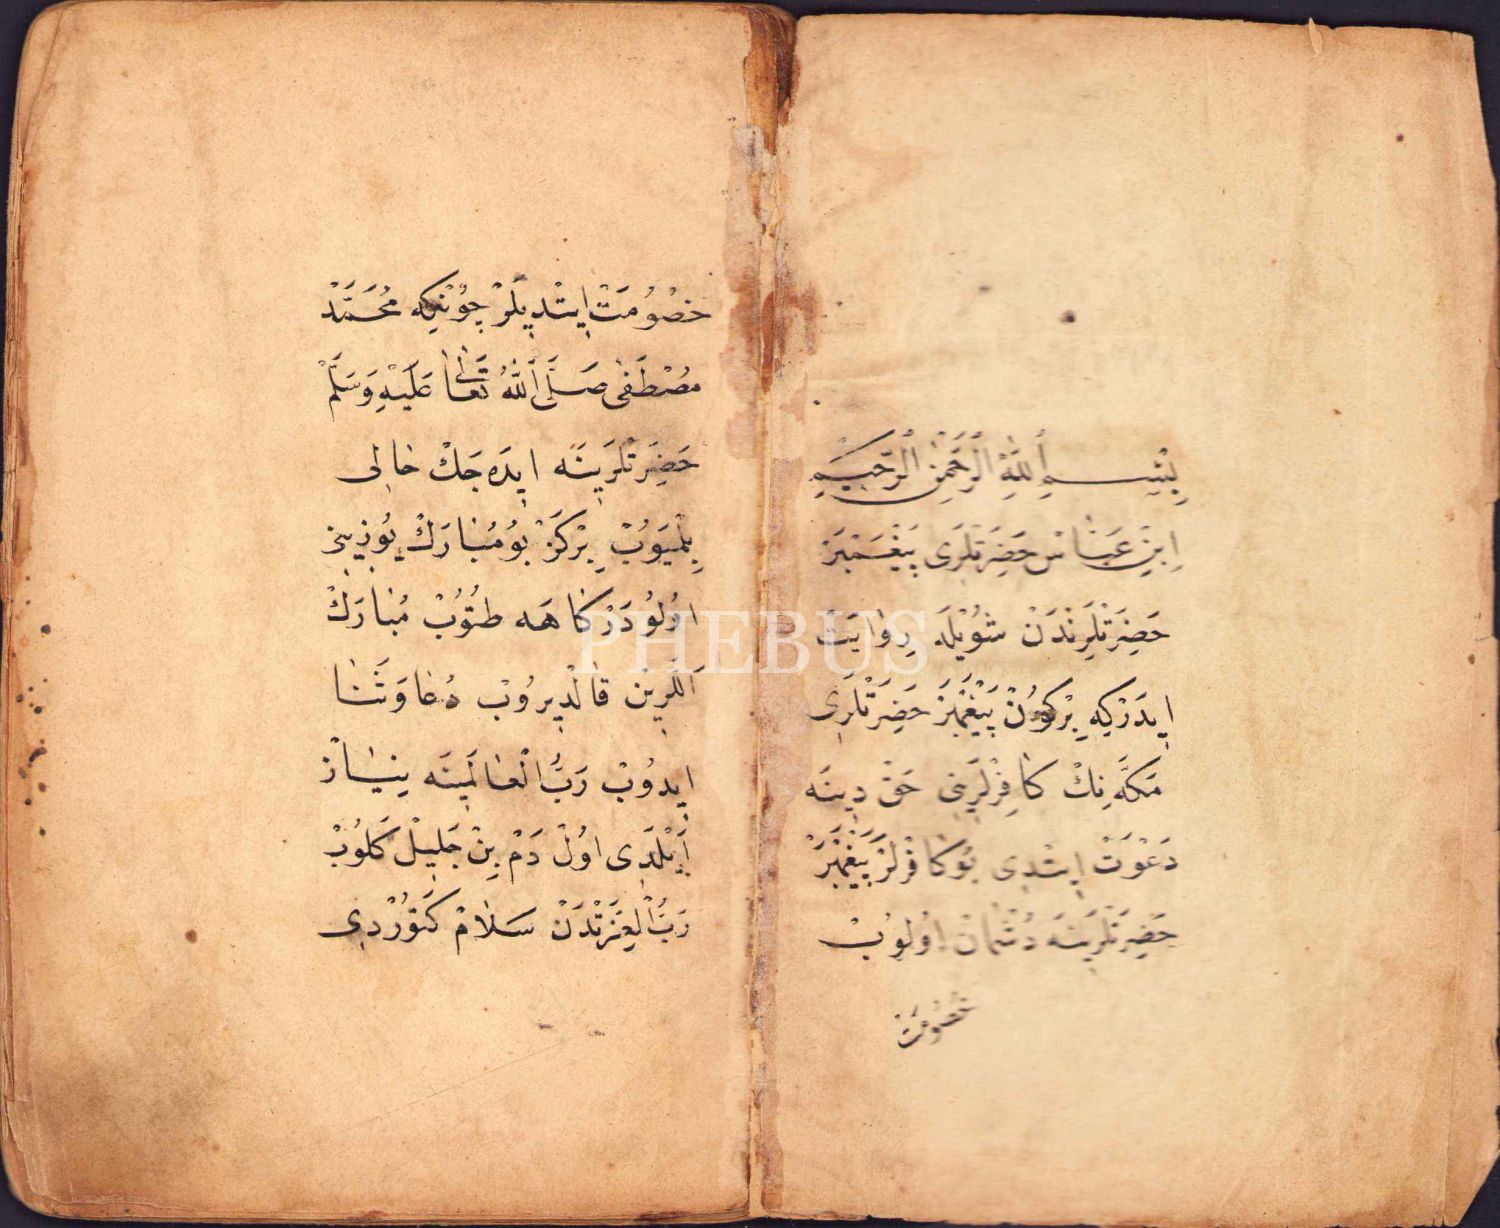 بِسْمِ اللّٰهِ الرَّحْمٰنِ الرَّحِيمِ
اِبْنِ عَبَّاسْ حَضَرَتْلَرِى پَيْغَمْبَرْ
حَضَرَتْلَرِنْدَنْ شُويْلَه رِوَايَتْ
اِيدَرْكِه بِرْكُونْ پَيْغَمْبَرْ حَضَرَتْلَرِى
مَكَّه نِكْ كَافِرْلَرِينِى حَقْ دِينَه
دَعْوَتْ اِيتْدِى بُو كَافِرْلَرْ پَيْغَمْبَرْ
حَضَرَتْلَرِينَه دُشْمَانْ اُولُوبْ
خصومت
خُصُومَتْ اِيتْدِيلَرْ چُونْكِه مُحَمَّدْ
مُصْطَفٰى صَلَّى اللّٰهُ تَعَالٰى عَلَيْهِ وَسَلَّمْ
حَضَرَتْلَرِينَه ايدَه جَكْ حَالِى
بِلْمَيُوبْ بِرْكَزْ بُو مُبَارَكْ يُوزِينِى
اُولُو دَرْكَاهَه طُتُوبْ مُبَارَكْ
اَللَّرِينْ قَالْدِيرُوبْ دُعَا وَثَنَا
اِيدُوبْ رَبُّ الْعَالَمِينَه نِيَازْ
اَيْلَدِى اُولْ دَمْ جَلِيلْ كَلُوبْ
رَبُّ الْعِزَّتْدَنْ سَلَامْ كَتُورْدِى
PHEBUS